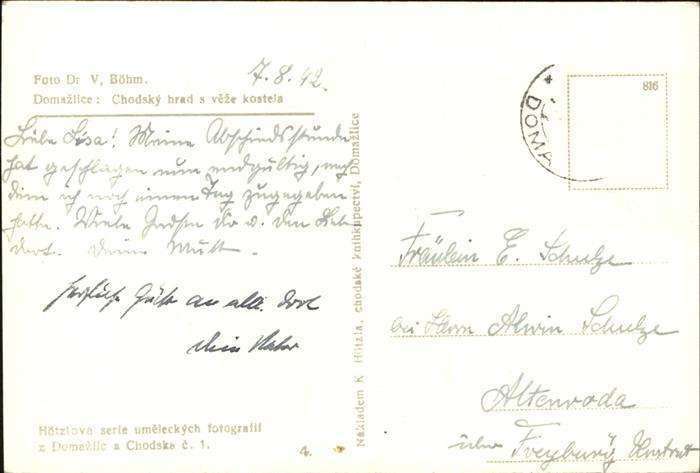 7.8.42.
Foto Dr V, Böhm.
Domažlice: Chodský hrad s věže kostela
Liebe Lisa! Meine Abschiedsstunde
hat geschlagen nun endgültig, nach
dem ich noch einen Tag zugegeben
hatte. Viele Grüße Dir u. den
dort. Deine Mutt
Herzliche Grüße an alle dort
Dein Vater
Hötzlova serie uměleckých fotografií
z Domažlic a Chodska č. 1.
4.
Nákladem K Hötzla, chodské knihkupectví, Domažlice
* DOMA
816
Fräulein E. Schulze
bei Herrn Alwin Schulze
Altenroda
über Freyburg Unstrut